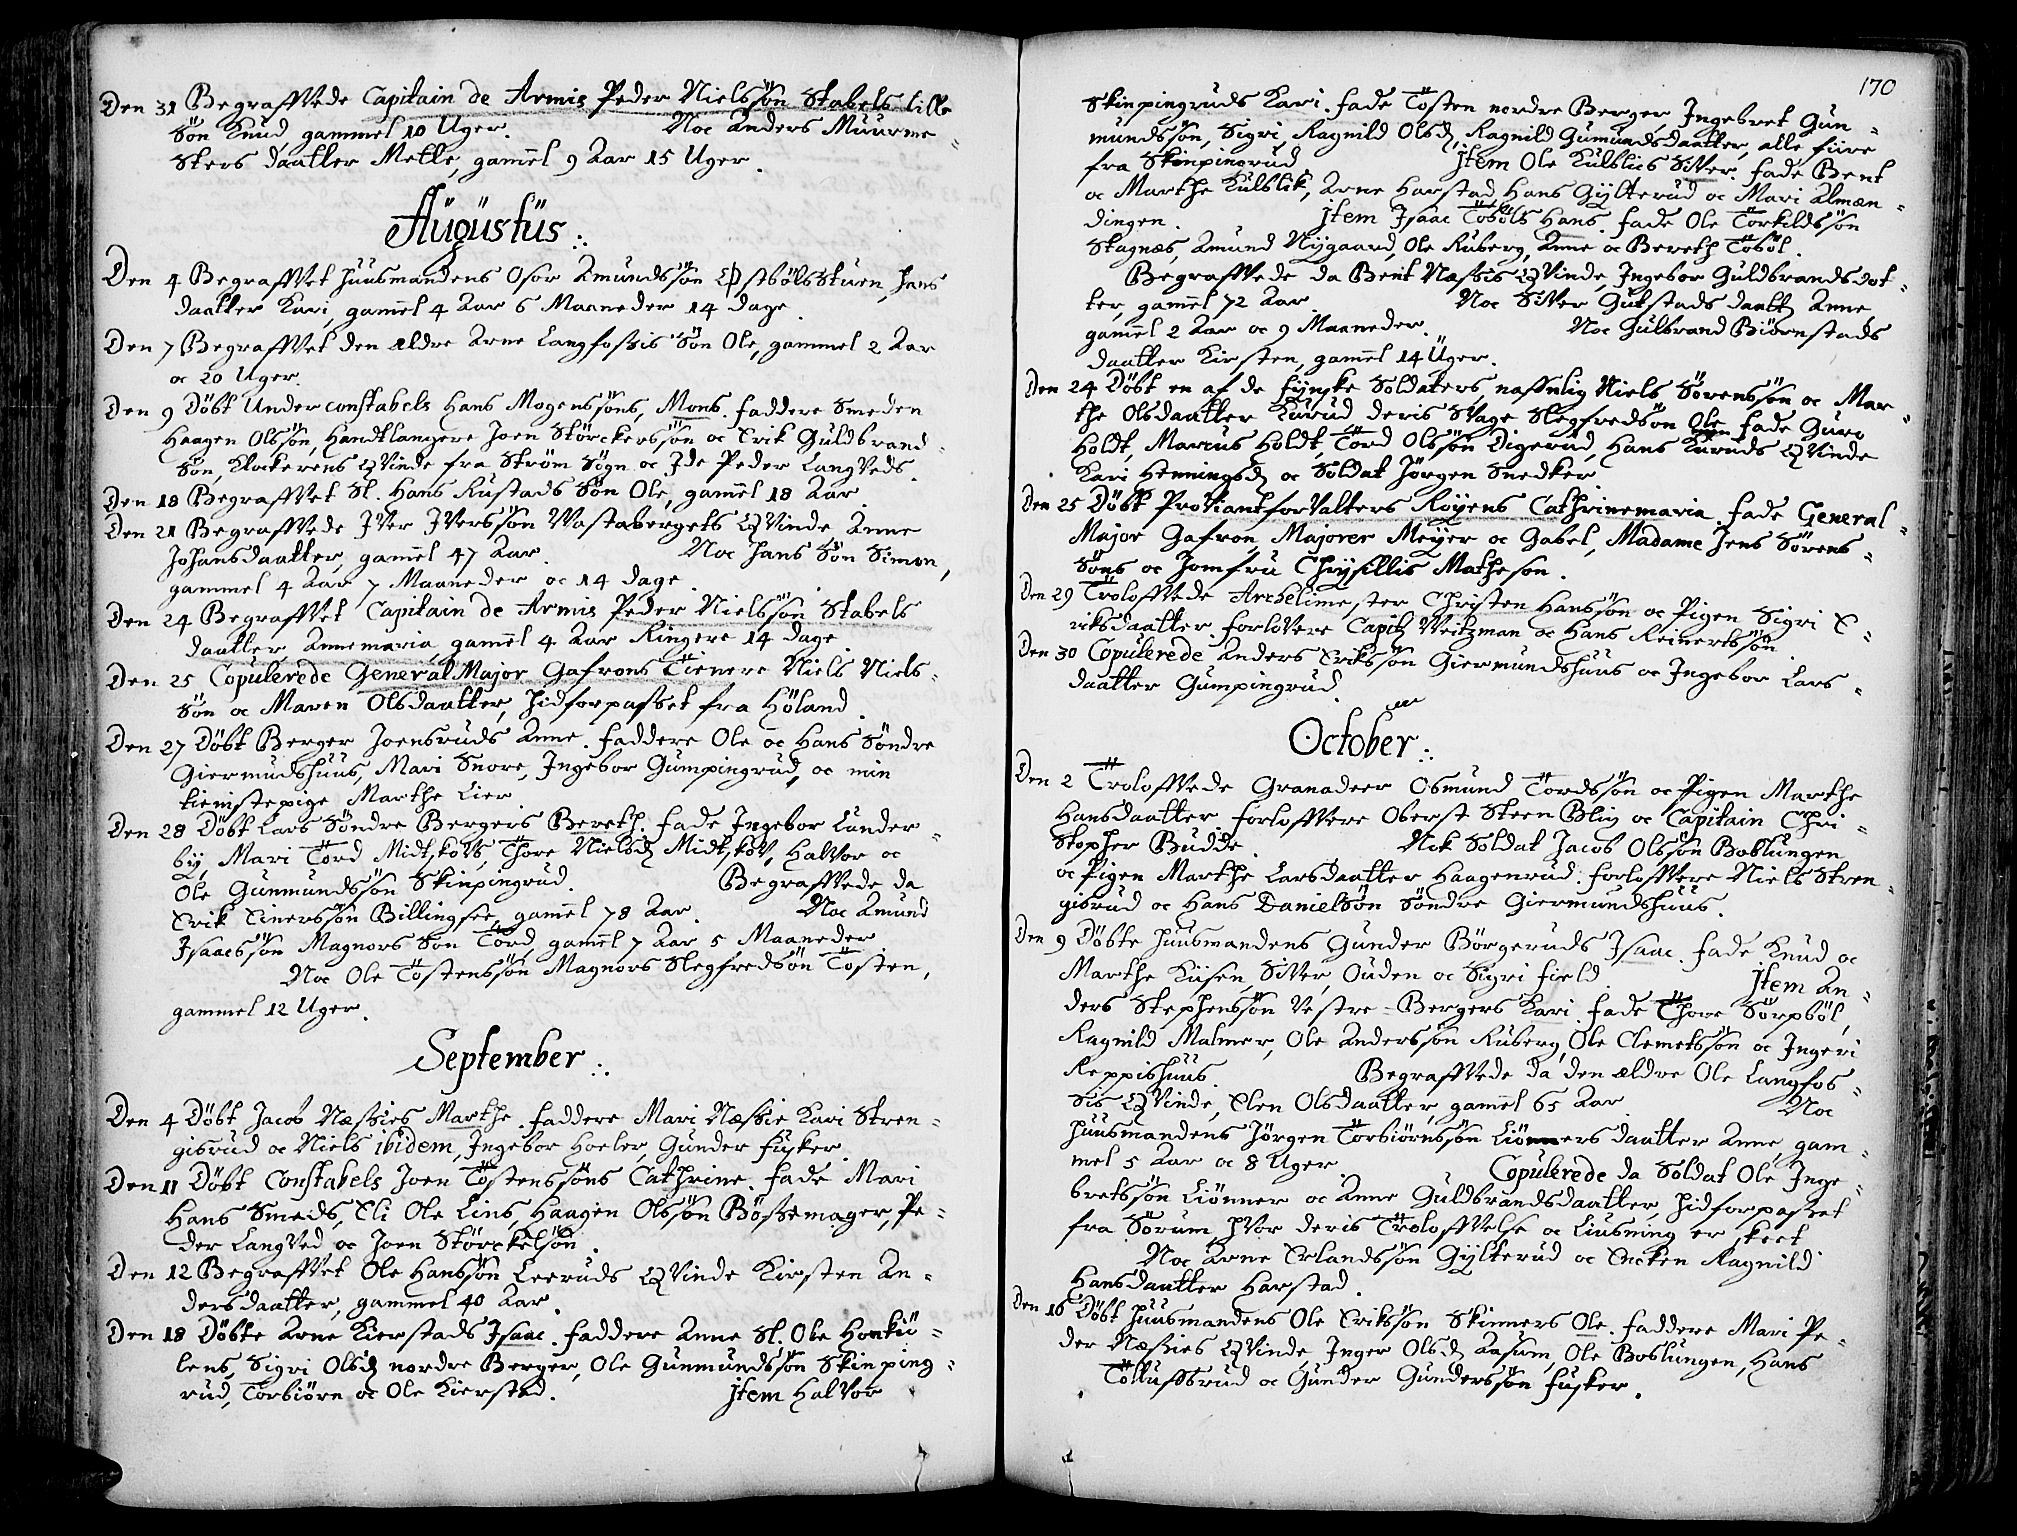 Den 31 Begraffvede Capitain de Armis Peder Nielssøn Stabels lille
Søn Knud, gammel 10 Uger. Noc Anders Muurme-
sters daatter Mette, gamel 9 Aar 15 Uger.
Augustus.
Den 4 Begraffvet Huusmandens Osor Amundssøn Østbølsstuen, hans
daatter Kari, gamel 4 Aar 6 Maaneder 14 dage.
Den 7 Begraffvet den ældre Arne Langfossis Søn Ole, gammel 2 Aar
oc 20 Uger.
Den 9 Døbt Underconstabels Hans Mogenssøns, Mons. faddere Smeden
Haagen Olssøn, Handtlangere Joen Størckerssøn oc Erik Guldbrand-
søn, Klockerens Qvinde fra Strøm Sogn oc Ide Peder Langveds.
Den 18 Begraffvet Sl. Hans Rustads Søn Ole, gamel 18 Aar.
Den 21 Begraffvede Iver Iverssøn Vastabergets Qvinde Anne
Johansdaatter, gamel 47 Aar. Noc hans Søn Simon,
gammel 4 Aar 7 Maaneder oc 14 dage.
Den 24 Begraffvet Capitain de Armis Peder Nielssøn Stabels
daatter Annemaria, gamel 4 Aar Ringere 14 dage.
Den 25 Copulerede General Major Gafrons Tienere Niels Niels-
søn oc Maren Olsdaatter, hidforpasset fra Høland.
Den 27 Døbt Berger Joensruds Anne. faddere Ole oc Hans Søndre
Giermudshuus, Mari Snore, Ingebor Gumpingrud, oc min
tienistepige Marthe Lier.
Den 28 Døbt Lars Søndre Bergers Bereth. fade Ingebor Lunder-
by, Mari Tord Midtskovs, Thore Nielsd. Midtskov, Halvor oc
Ole Gunmundssøn Skinpingrud. Begraffvede da
Erik Einerssøn Billingsee, gamel 78 Aar. Noc Amund
Isaacssøn Magnors Søn Tord, gamel 7 Aar 5 Maaneder.
Noc Ole Tostenssøn Magnors Slegfredsøn Tosten,
gammel 12 Uger.
September.
Den 4 Døbt Jacob Næssies Marthe. faddere Mari Næssie Kari Stren-
gisrud oc Niels ibidem, Ingebor Hoeler, Gunder fusker.
Den 11 Døbt Constabels Joen Tostenssøns Cathrine. fade Mari
Hans Smeds, Eli Ole Lins, Haagen Olssøn Bøssemager, Pe-
der Langved oc Joen Størckelsøn.
Den 12 Begraffvet Ole Hanssøn Leeruds Qvinde Kirsten An-
dersdaatter, gammel 40 Aar.
Den 18 Døbte Arne Kierstads Isaac. faddere Anne Sl. Ole Honkü-
lens, Sigri Olsd. nordre Berger, Ole Gunmundssøn Skinping-
rud, Torbiørn oc Ole Kierstad. Item Halvor
170
Skinpingruds Kari. fade Tosten nordre Berger, Ingebret Gun-
mundssøn, Sigri, Ragnild Olsd. Ragnild Gumundsdaatter, alle fiire
fra Skinpingrud. Item Ole Kulblies Siver. fade Bent
oc Marthe Kulblik, Arne Harstad, Hans Gylterud oc Mari Almæn-
dingen. Item Isaac Tobøls Hans. fade Ole Torkildssøn
Skagnæs, Amund Nygaard, Ole Ruberg, Anne oc Bereth Tobøl.
Begraffvede da Bent Næssis Qvinde, Ingebor Guldbrandsdot-
ter, gamel 72 Aar. Noc Siver Gukstads daatt. Anne
gamel 2 Aar oc 9 Maaneder. Noc Gulbrand Biørnstads
daatter Kirsten, gamel 14 Uger.
Den 24 Døbt en af de fynske Soldaters, naffnlig Niels Sørenssøn oc Mar-
the Olsdaatter Kurud deris Svage Slegfredsøn Ole. fade Guro
Holdt, Marcus Holdt, Tord Olssøn Digerud, Hans Kuruds Qvinde
Kari Henningsd. oc Soldat Jørgen Snedker.
Den 25 Døbt Proviantforvalters Royens Cathrinemaria. fade General-
Major Gafron, Majorer Meyer oc Gabel, Madame Jens Sørens-
søns oc Jomfru Chrysillis Matheson.
Den 29 Troloffvede Archelimester Christen Hanssøn oc Pigen Sigri E-
riksdaatter. forlovere Capit. Veitzman oc Hans Reinertssøn.
Den 30 Copulerede Anders Erikssøn Giermundshuus oc Ingebor Lars-
daatter Gumpingrud.
October.
Den 2 Troloffvede Granadeer Osmund Tordssøn oc Pigen Marthe
Hansdaatter forloffvere Oberst Steen Blix oc Capitain Chri-
stopher Budde. Nok Soldat Jacob Olssøn Boslungen
oc Pigen Marthe Larsdaatter Haagenrud. forloffvere Niels Stren-
gisrud oc Hans Danielsøn Søndre Giermundshuus.
Den 9 Døbte Huusmandens Gunder Børgeruds Isaac. fade Knud oc
Marthe Kiisen, Siver, Ouden oc Sigri field. Item An-
ders Stephenssøn Vestre-Bergers Kari. fade Thore Sørpbøl,
Ragnild Malmer, Ole Anderssøn Ruberg, Ole Clemetssøn oc Ingeri
Reppishuus. Begraffvede da den ældre Ole Langfos-
sis Qvinde, Elen Olsdaatter, gamel 65 Aar. Noc
huusmandens Jørgen Torbiørnssøn Liønners daatter Anne, gam-
mel 5 Aar oc 8 Uger. Copulerede da Soldat Ole Inge-
bretssøn Liønner oc Anne Guldbrandsdaatter, hidforpasset
fra Sørum, hvor deris Troloffvelse oc Liusning er skeet.
Noc Arne Erlandssøn Gylterud oc Encken Ragnild
Hansdaatter Harstad.
Den 16 Døbt huusmandens Ole Erikssøn Skinners Ole. faddere Mari Pe-
der Næssies Qvinde, Inger Olsd. Aasum, Ole Boslungen, Hans
Tolluffsrud oc Gunder Gunderssøn fusker.